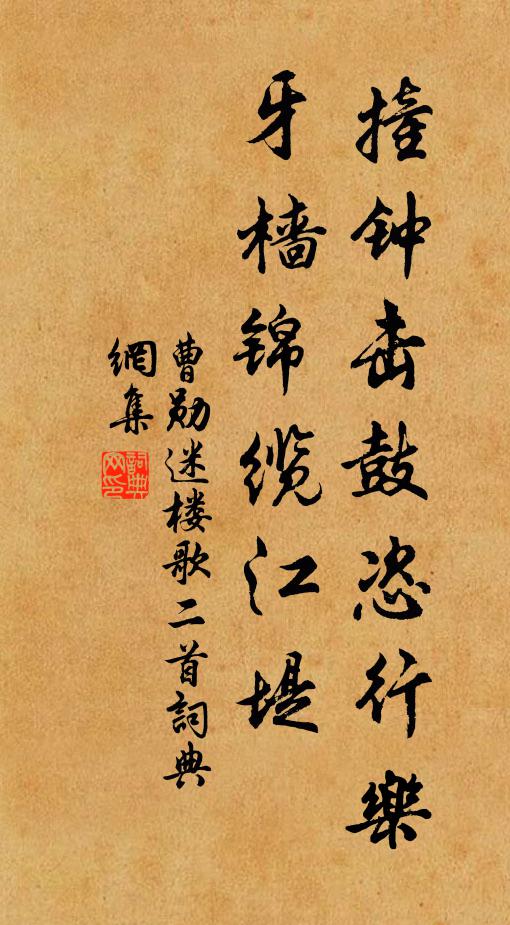 撞钟击鼓恣行樂
牙樯锦缆江堤
曹勋迷楼歌二首詞典
網集
詞典网印